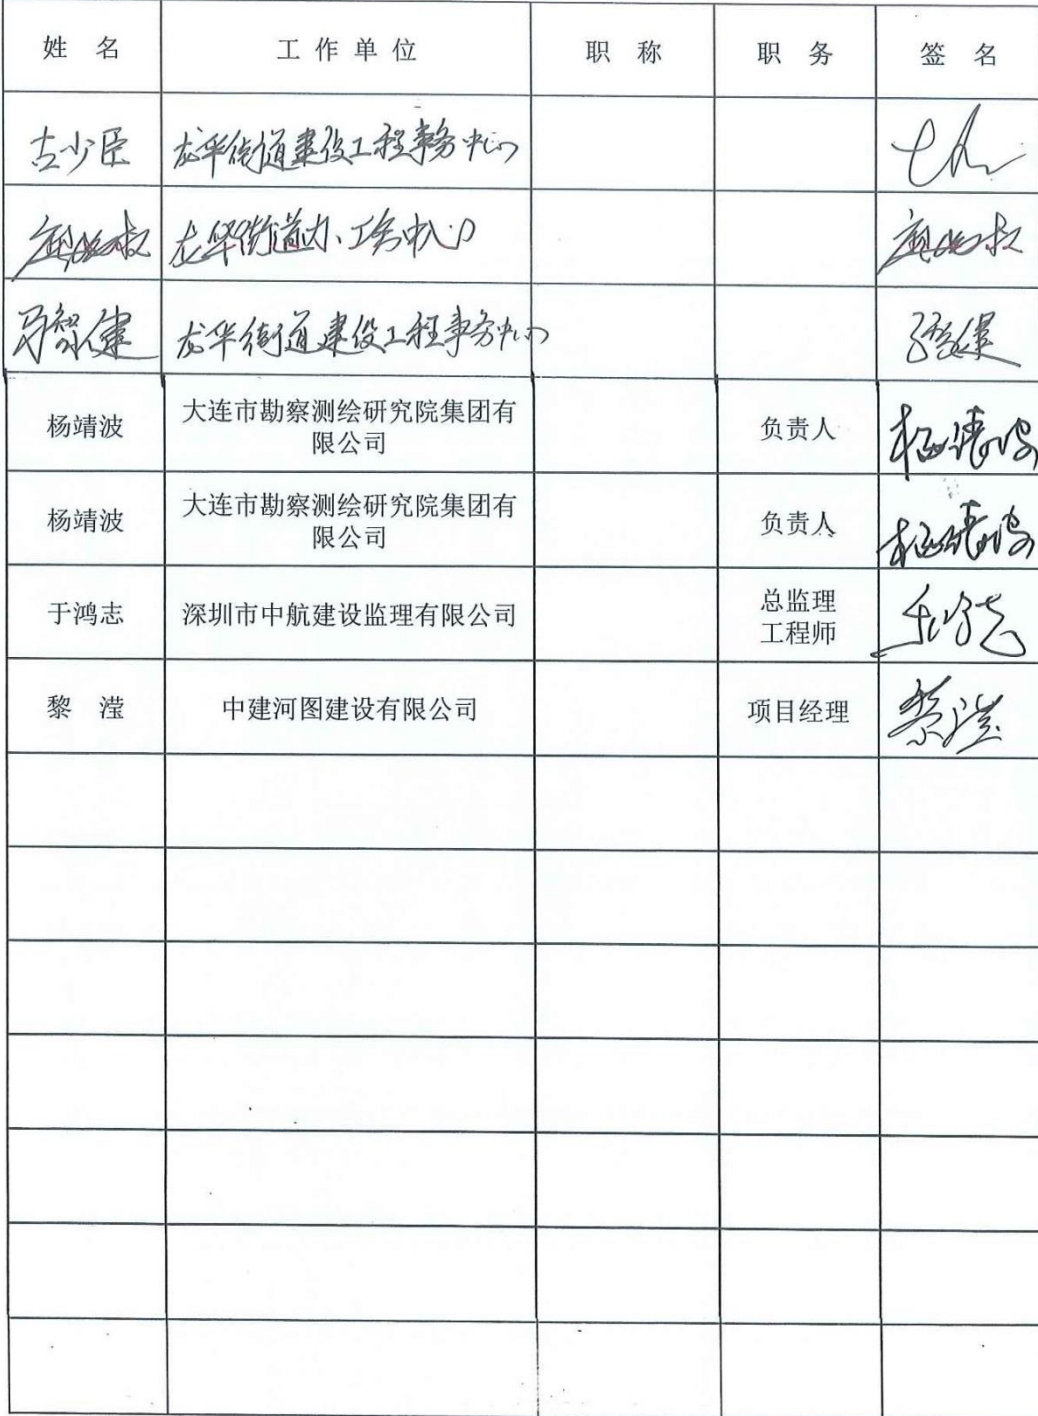 姓 名 工作单位 职 称 职 务 签 名
古少臣 龙华街道建设工程事务中心
龙华街道办工务中心
马智健 龙华街道建设工程事务中心
杨靖波 大连市勘察测绘研究院集团有 负责人 杨靖波
限公司
杨靖波 大连市勘察测绘研究院集团有 负责人 杨靖波
限公司
于鸿志 深圳市中航建设监理有限公司 总监理 于鸿志
工程师
黎 滢 中建河图建设有限公司 项目经理 黎滢